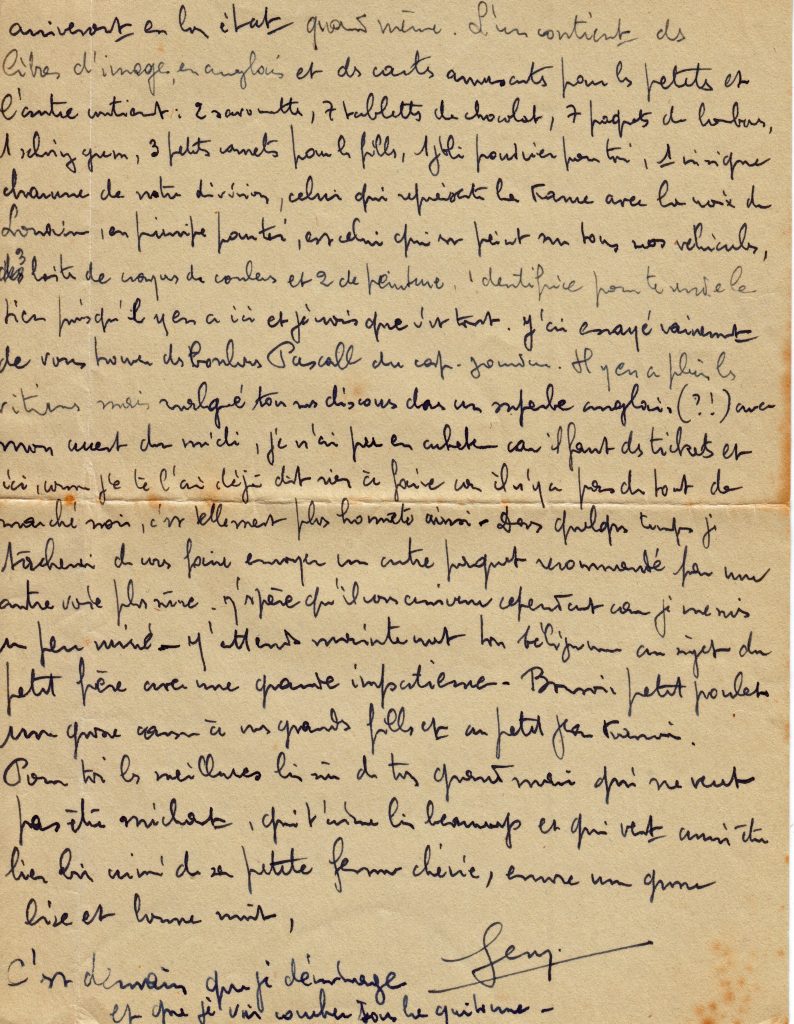 arriveront en bon état quand même. L'un contient des
livres d'image, en anglais et des cartes amusantes pour les petits et
l'autre contient : 2 savonnette, 7 tablettes de chocolat, 7 paquets de bonbons,
1 schwing gum, 3 petits carnets pour les filles, 1 joli poudrier pour toi, 1 insigne
de notre division, celui qui représente la France avec la croix de
Lorraine, en principe pour toi, est celui qui est peint sur tous nos véhicules,
3 boite de crayons de couleurs et 2 de peinture. 1 dentifrice pour te rendre le
tien puisqu'il y en a ici et je crois que c'est tout. J'ai essayé vainement
de vous trouver des bonbons Pascall du cap. Il y en a plein les
vitrines mais malgré tous nos discours dans un superbe anglais (?!) avec
mon accent du midi, je n'ai pu en acheter car il faut des tickets et
ici, comme je te l'ai déjà dit rien à faire car il n'y a pas du tout de
marché noir, c'est tellement plus honnête ainsi - Dans quelques temps je
tacherai de vous faire envoyer un autre paquet recommandé par une
autre voie plus sûre. J'espère qu'il vous arrivera cependant car je me suis
un peu ruiné - J'attends maintenant ton télégramme au sujet du
petit frère avec une grande impatience - Bonsoir petit poulet
une grosse caresse à nos grandes filles et au petit Jean François.
Pour toi les meilleures bises de ton grand mari qui ne veut
pas être méchant, qui t'aime bien beaucoup et qui veut aussi être
bien bien aimé de sa petite femme chérie, encore une grosse
bise et bonne nuit,
C'est demain que je déménage
et que je vais coucher sous la guitoune -